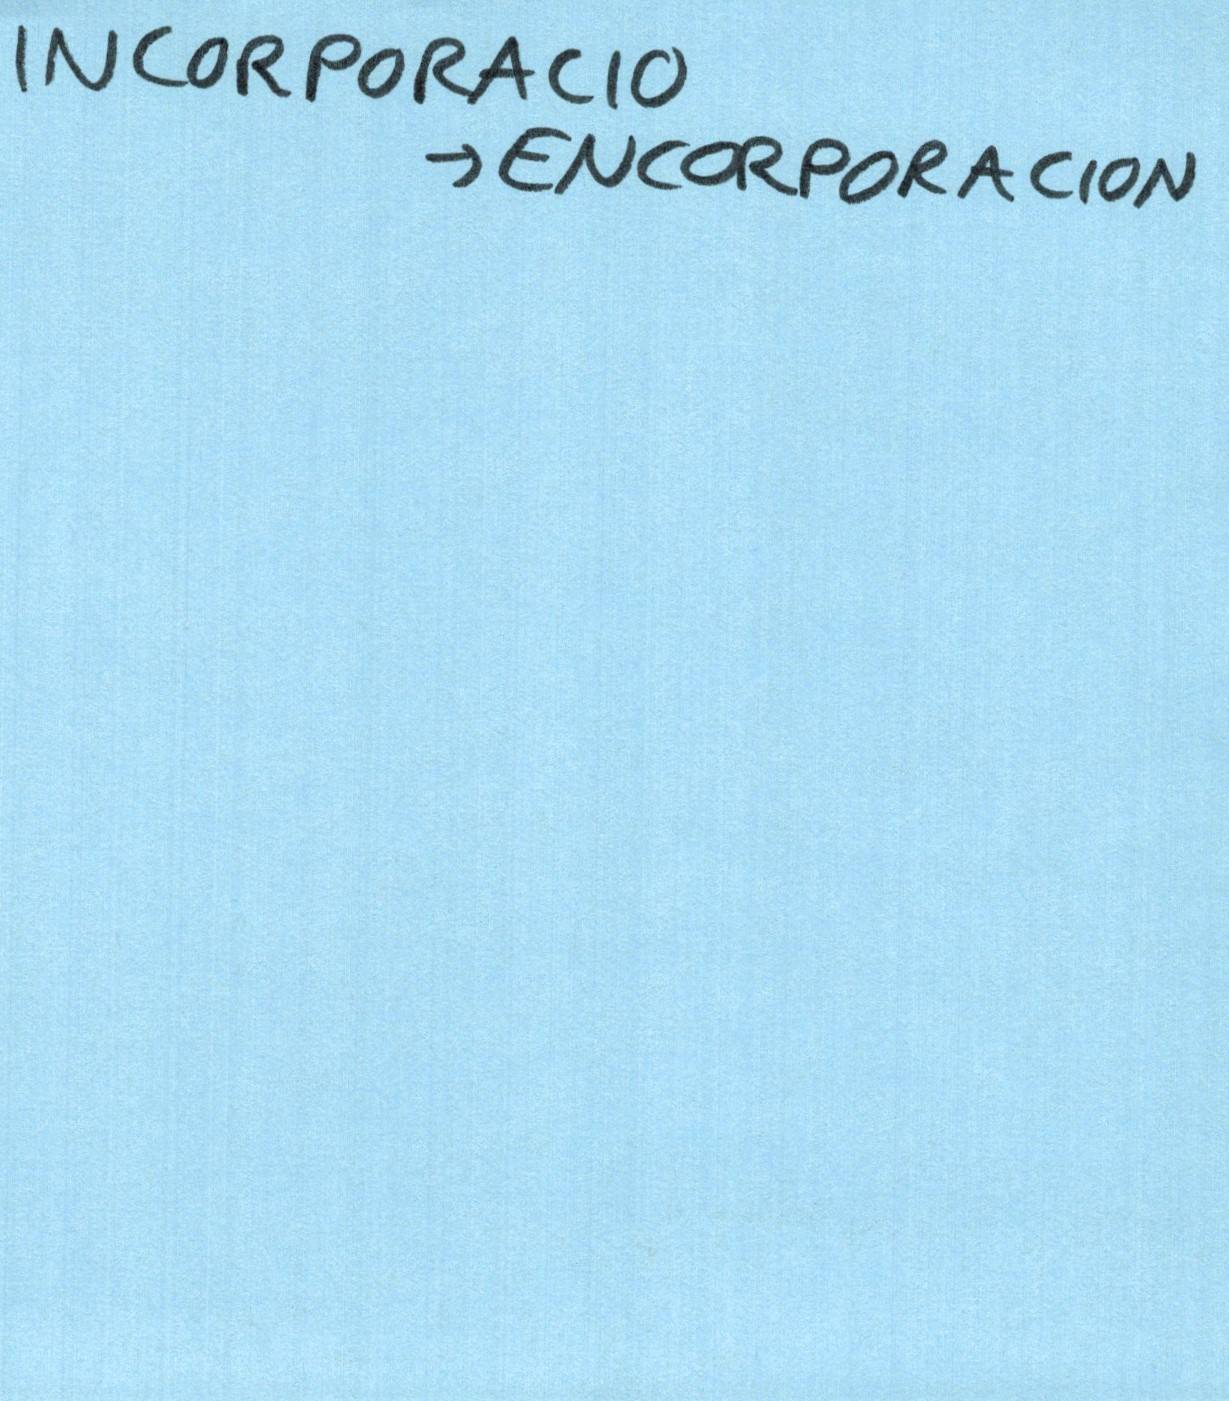 INCORPORACIO
→ ENCORPORACION